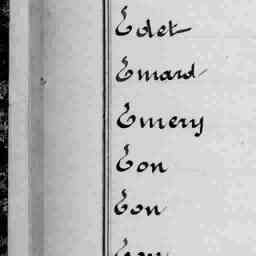 Edet
Emard
Emery
Eon
Eon